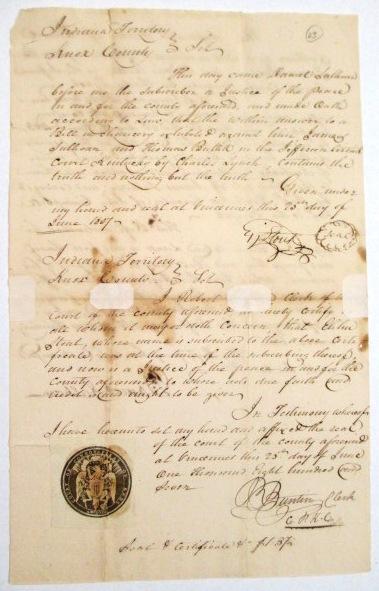 63
Indiana Territory
Knox County } Sct
This day came Daniel Sullivan
before me the subscriber a Justice of the peace
in and for the county aforesaid, and made Oath
according to Law, that the within answer to a
Bill in Chancery exhibited against him, James
Sullivan and Thomas Bullitt in the Jefferson Circuit
Court Kentucky by Charles Lynch, contains the
truth and nothing but the truth
Given under
my hand and seal at Vincennes this 25th day of
June 1807
Seal
Indiana Territory
Knox County } Sct
I Robert Clerk of the
Court of the county aforesaid do hereby certify
all whom it may doth Concern, that
whose name is subscribed to the above Certi
ficate, was at the time of the subscribing thereof
and now is a Justice of the peace in and for the
County aforesaid to whose acts due faith and
credit is and ought to be given
In Testimony whereof
I have hereunto set my hand and affixed the seal
of the court of the county aforesaid
at Vincennes this 25th day of June
One thousand Eight hundred and
Seven
R Buntin Clerk
C.P.K.C
Seal & Certificate